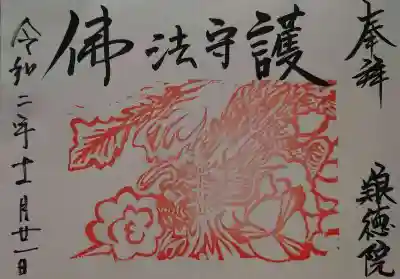 奉拝
佛法守護
徳院
令和二年十一月廿一日